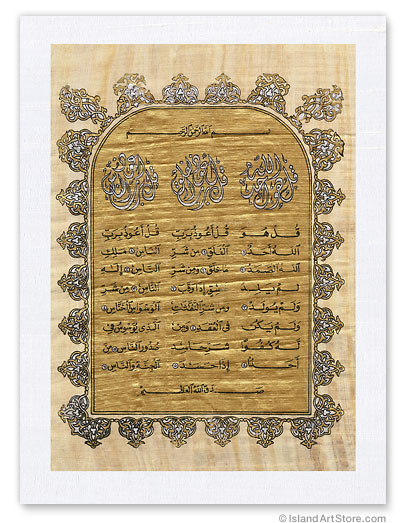 بسم الله الرحمن الرحيم
قُلْ هُوَ
اللَّهُ أَحَدٌ
اللَّهُ الصَّمَدُ
لَمْ يَلِدْ
وَلَمْ يُولَدْ
وَلَمْ يَكُن
لَّهُ كُفُوًا
أَحَدٌ
قُلْ أَعُوذُ بِرَبِّ
الْفَلَقِ مِن شَرِّ
مَا خَلَقَ وَمِن شَرِّ
غَاسِقٍ إِذَا وَقَبَ
وَمِن شَرِّ النَّفَّاثَاتِ
فِي الْعُقَدِ وَمِن
شَرِّ حَاسِدٍ
إِذَا حَسَدَ
قُلْ أَعُوذُ بِرَبِّ
النَّاسِ مَلِكِ
النَّاسِ إِلَٰهِ
النَّاسِ مِن شَرِّ
الْوَسْوَاسِ الْخَنَّاسِ
الَّذِي يُوَسْوِسُ فِي
صُدُورِ النَّاسِ مِنَ
الْجِنَّةِ وَالنَّاسِ
صدق الله العظيم
© IslandArtStore.com